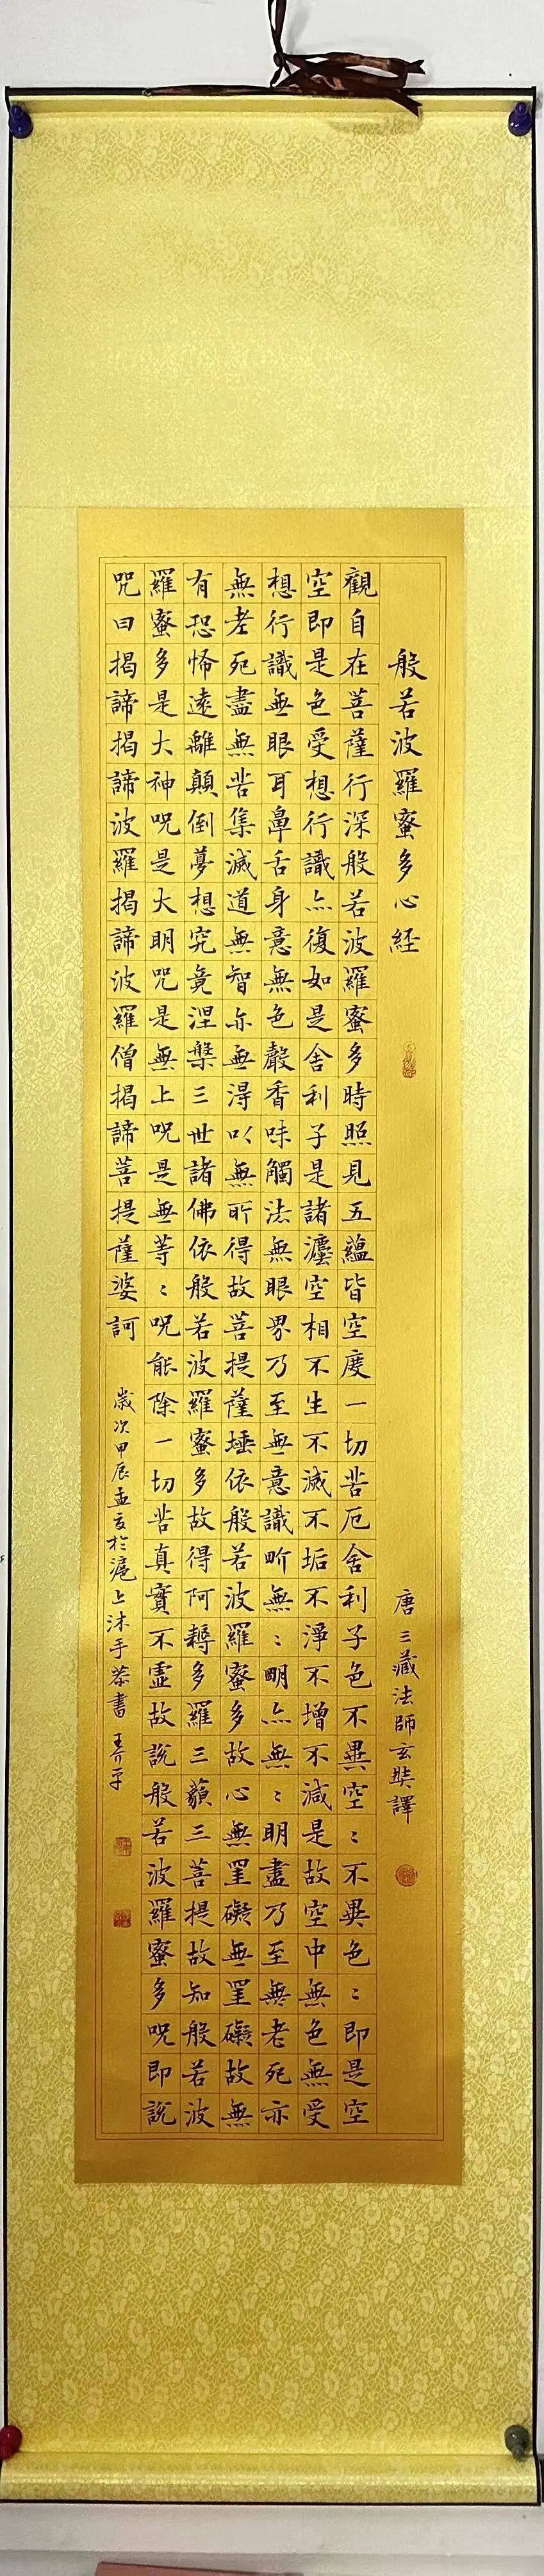 般若波羅蜜多心経 唐三藏法師玄奘譯
觀自在菩薩行深般若波羅蜜多時照見五蘊皆空度一切苦厄舍利子色不異空〻不異色〻即是空
空即是色受想行識亦復如是舍利子是諸灋空相不生不滅不垢不淨不增不減是故空中無色無受
想行識無眼耳鼻舌身意無色聲香味觸法無眼界乃至無意識界無〻明亦無〻明盡乃至無老死亦
無老死盡無苦集滅道無智亦無得以無所得故菩提薩埵依般若波羅蜜多故心無罣礙無罣礙故無
有恐怖遠離顛倒夢想究竟涅槃三世諸佛依般若波羅蜜多故得阿耨多羅三藐三菩提故知般若波
羅蜜多是大神咒是大明咒是無上咒是無等〻咒能除一切苦真實不虛故說般若波羅蜜多咒即說
咒曰揭諦揭諦波羅揭諦波羅僧揭諦菩提薩婆訶
歲次甲辰孟夏於滬上沐手恭書 王介平